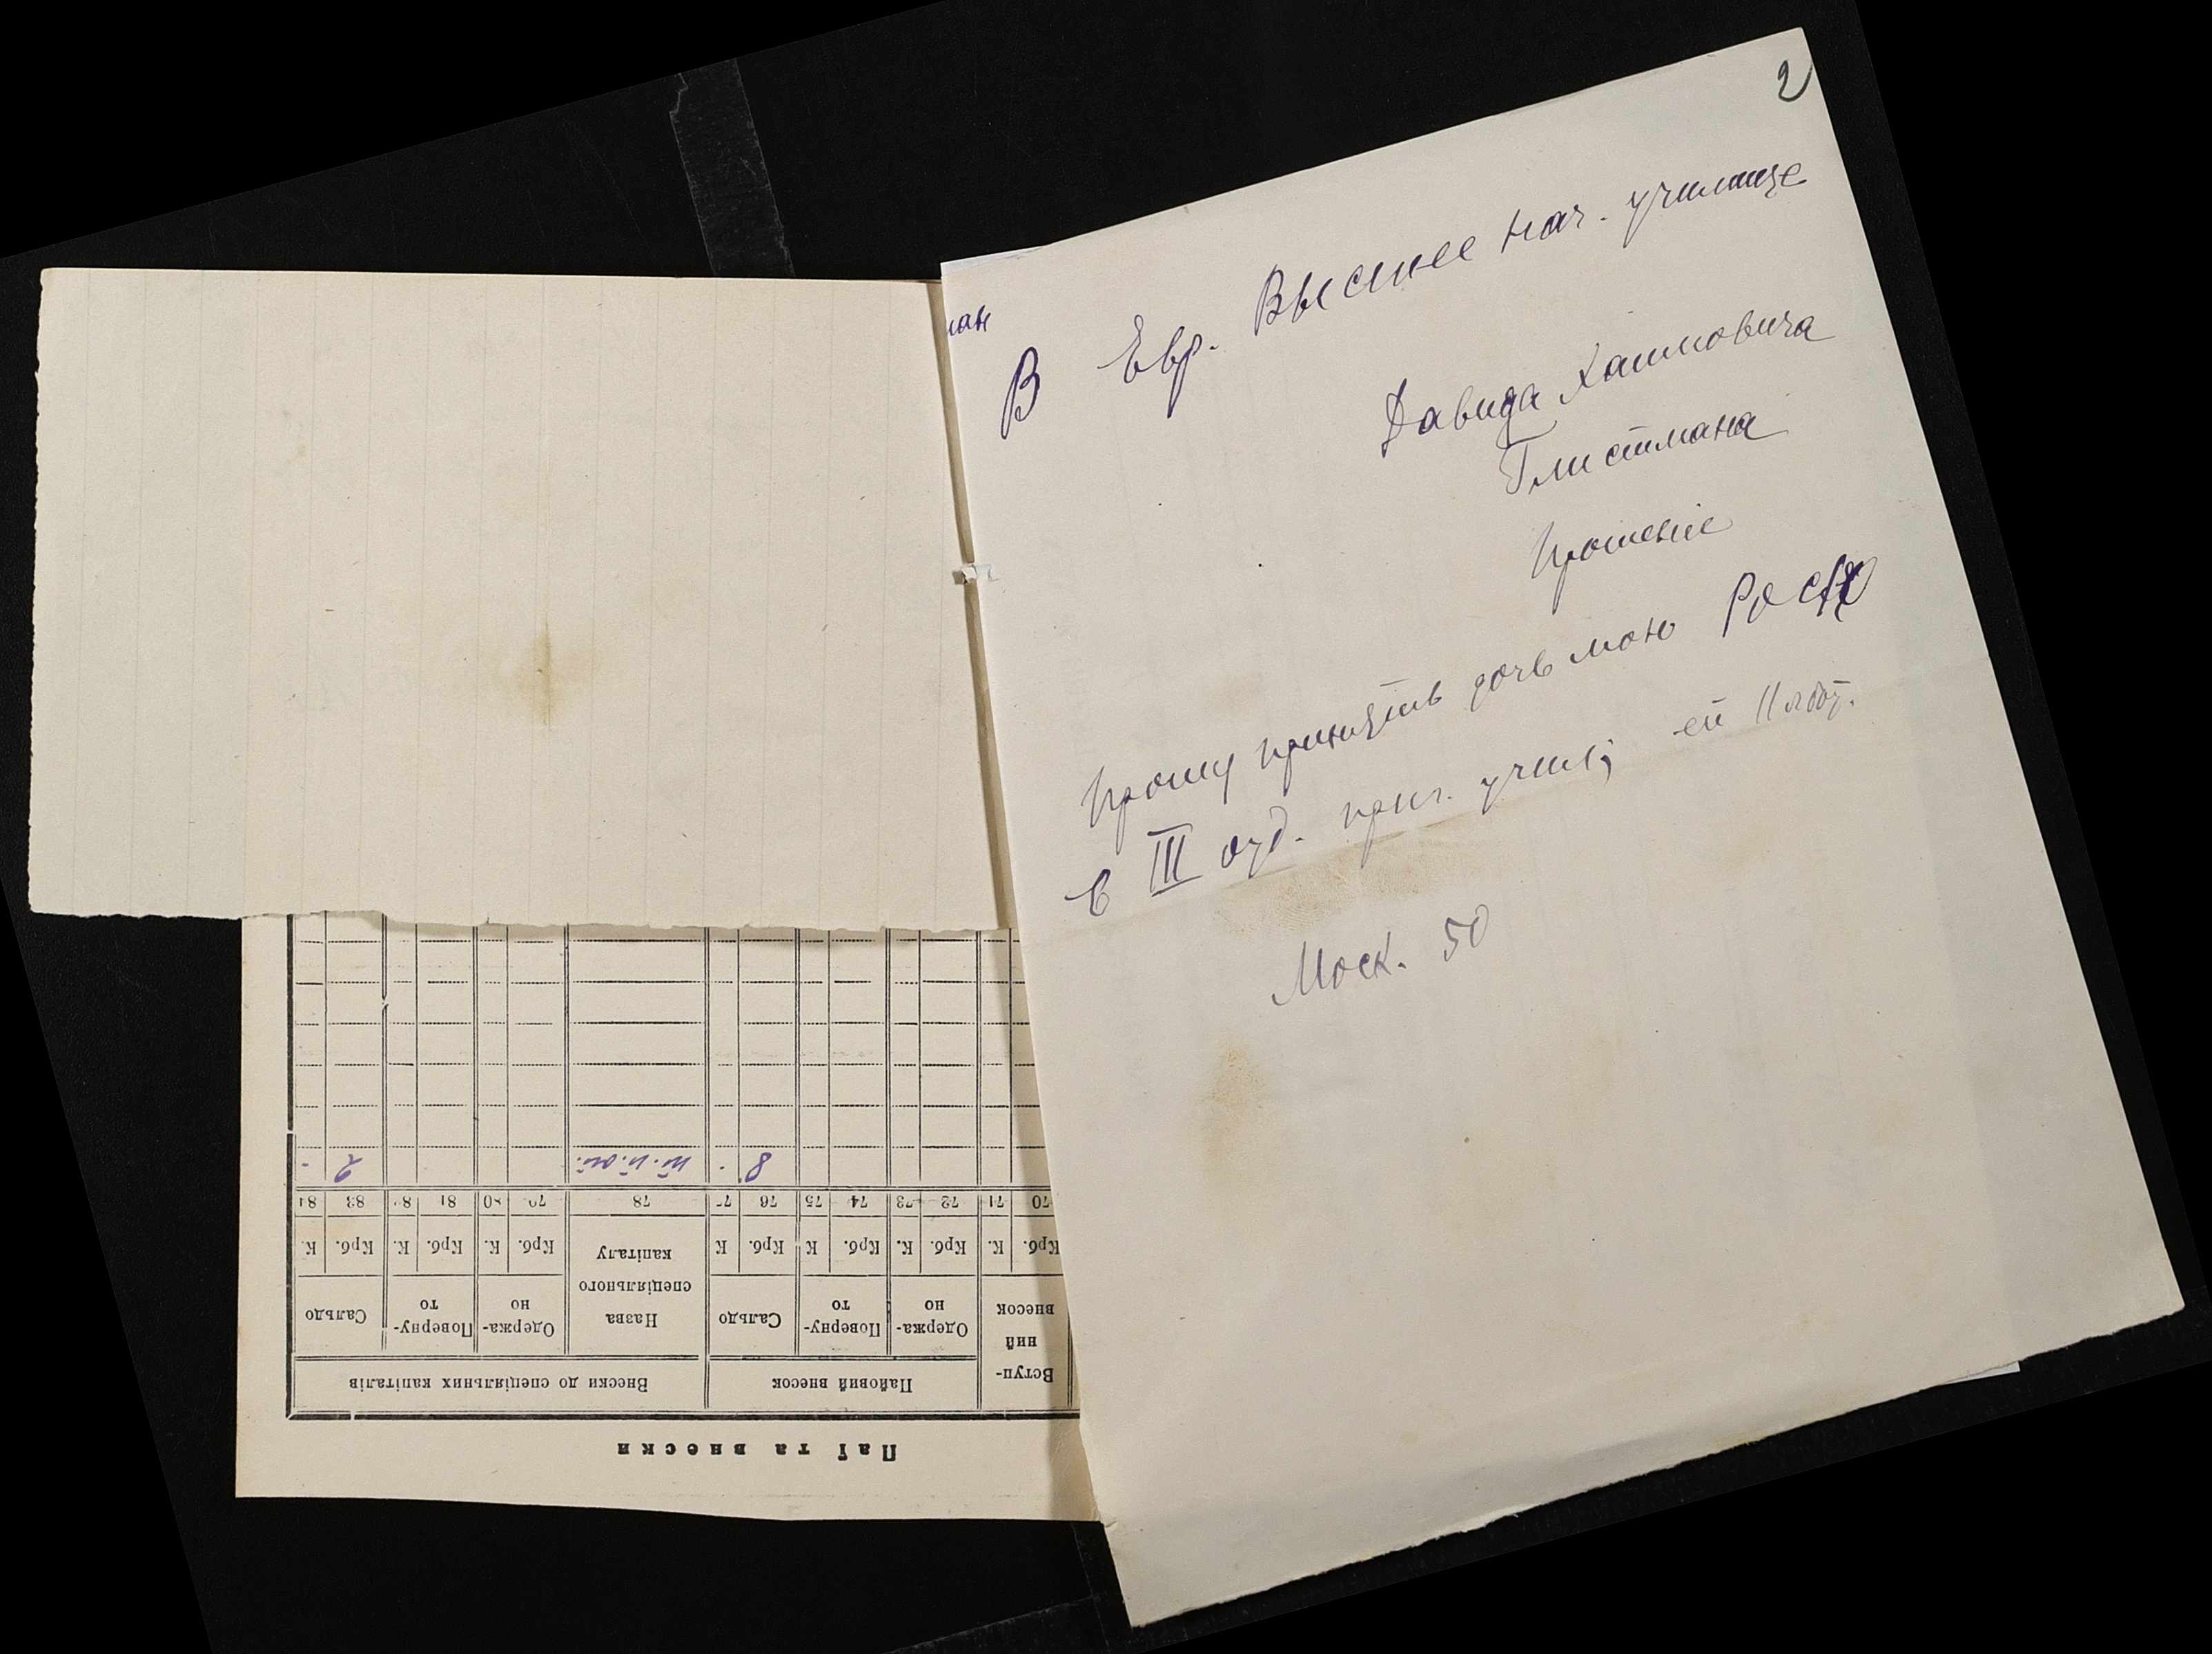 2
ман
В Евр. Высшее нач. училище
Давида Хаимовича
Глистмана
Прошение
Прошу принять дочь мою Росю
в III отд. приг. учил; ей 11 лет.
Моск. 50
Паї та внески
Вступ-
ний
внесок
Пайовий внесок
Внески до спеціяльних капіталів
Одержа-
но
Поверну-
то
Сальдо
Назва
спеціяльного
капіталу
Одержа-
но
Поверну-
то
Сальдо
Крб. К. Крб. К. Крб. К Крб. К Крб. К. Крб. К. Крб. К.
70 71 72 73 74 75 76 78 81 83 84
8 - 2 -